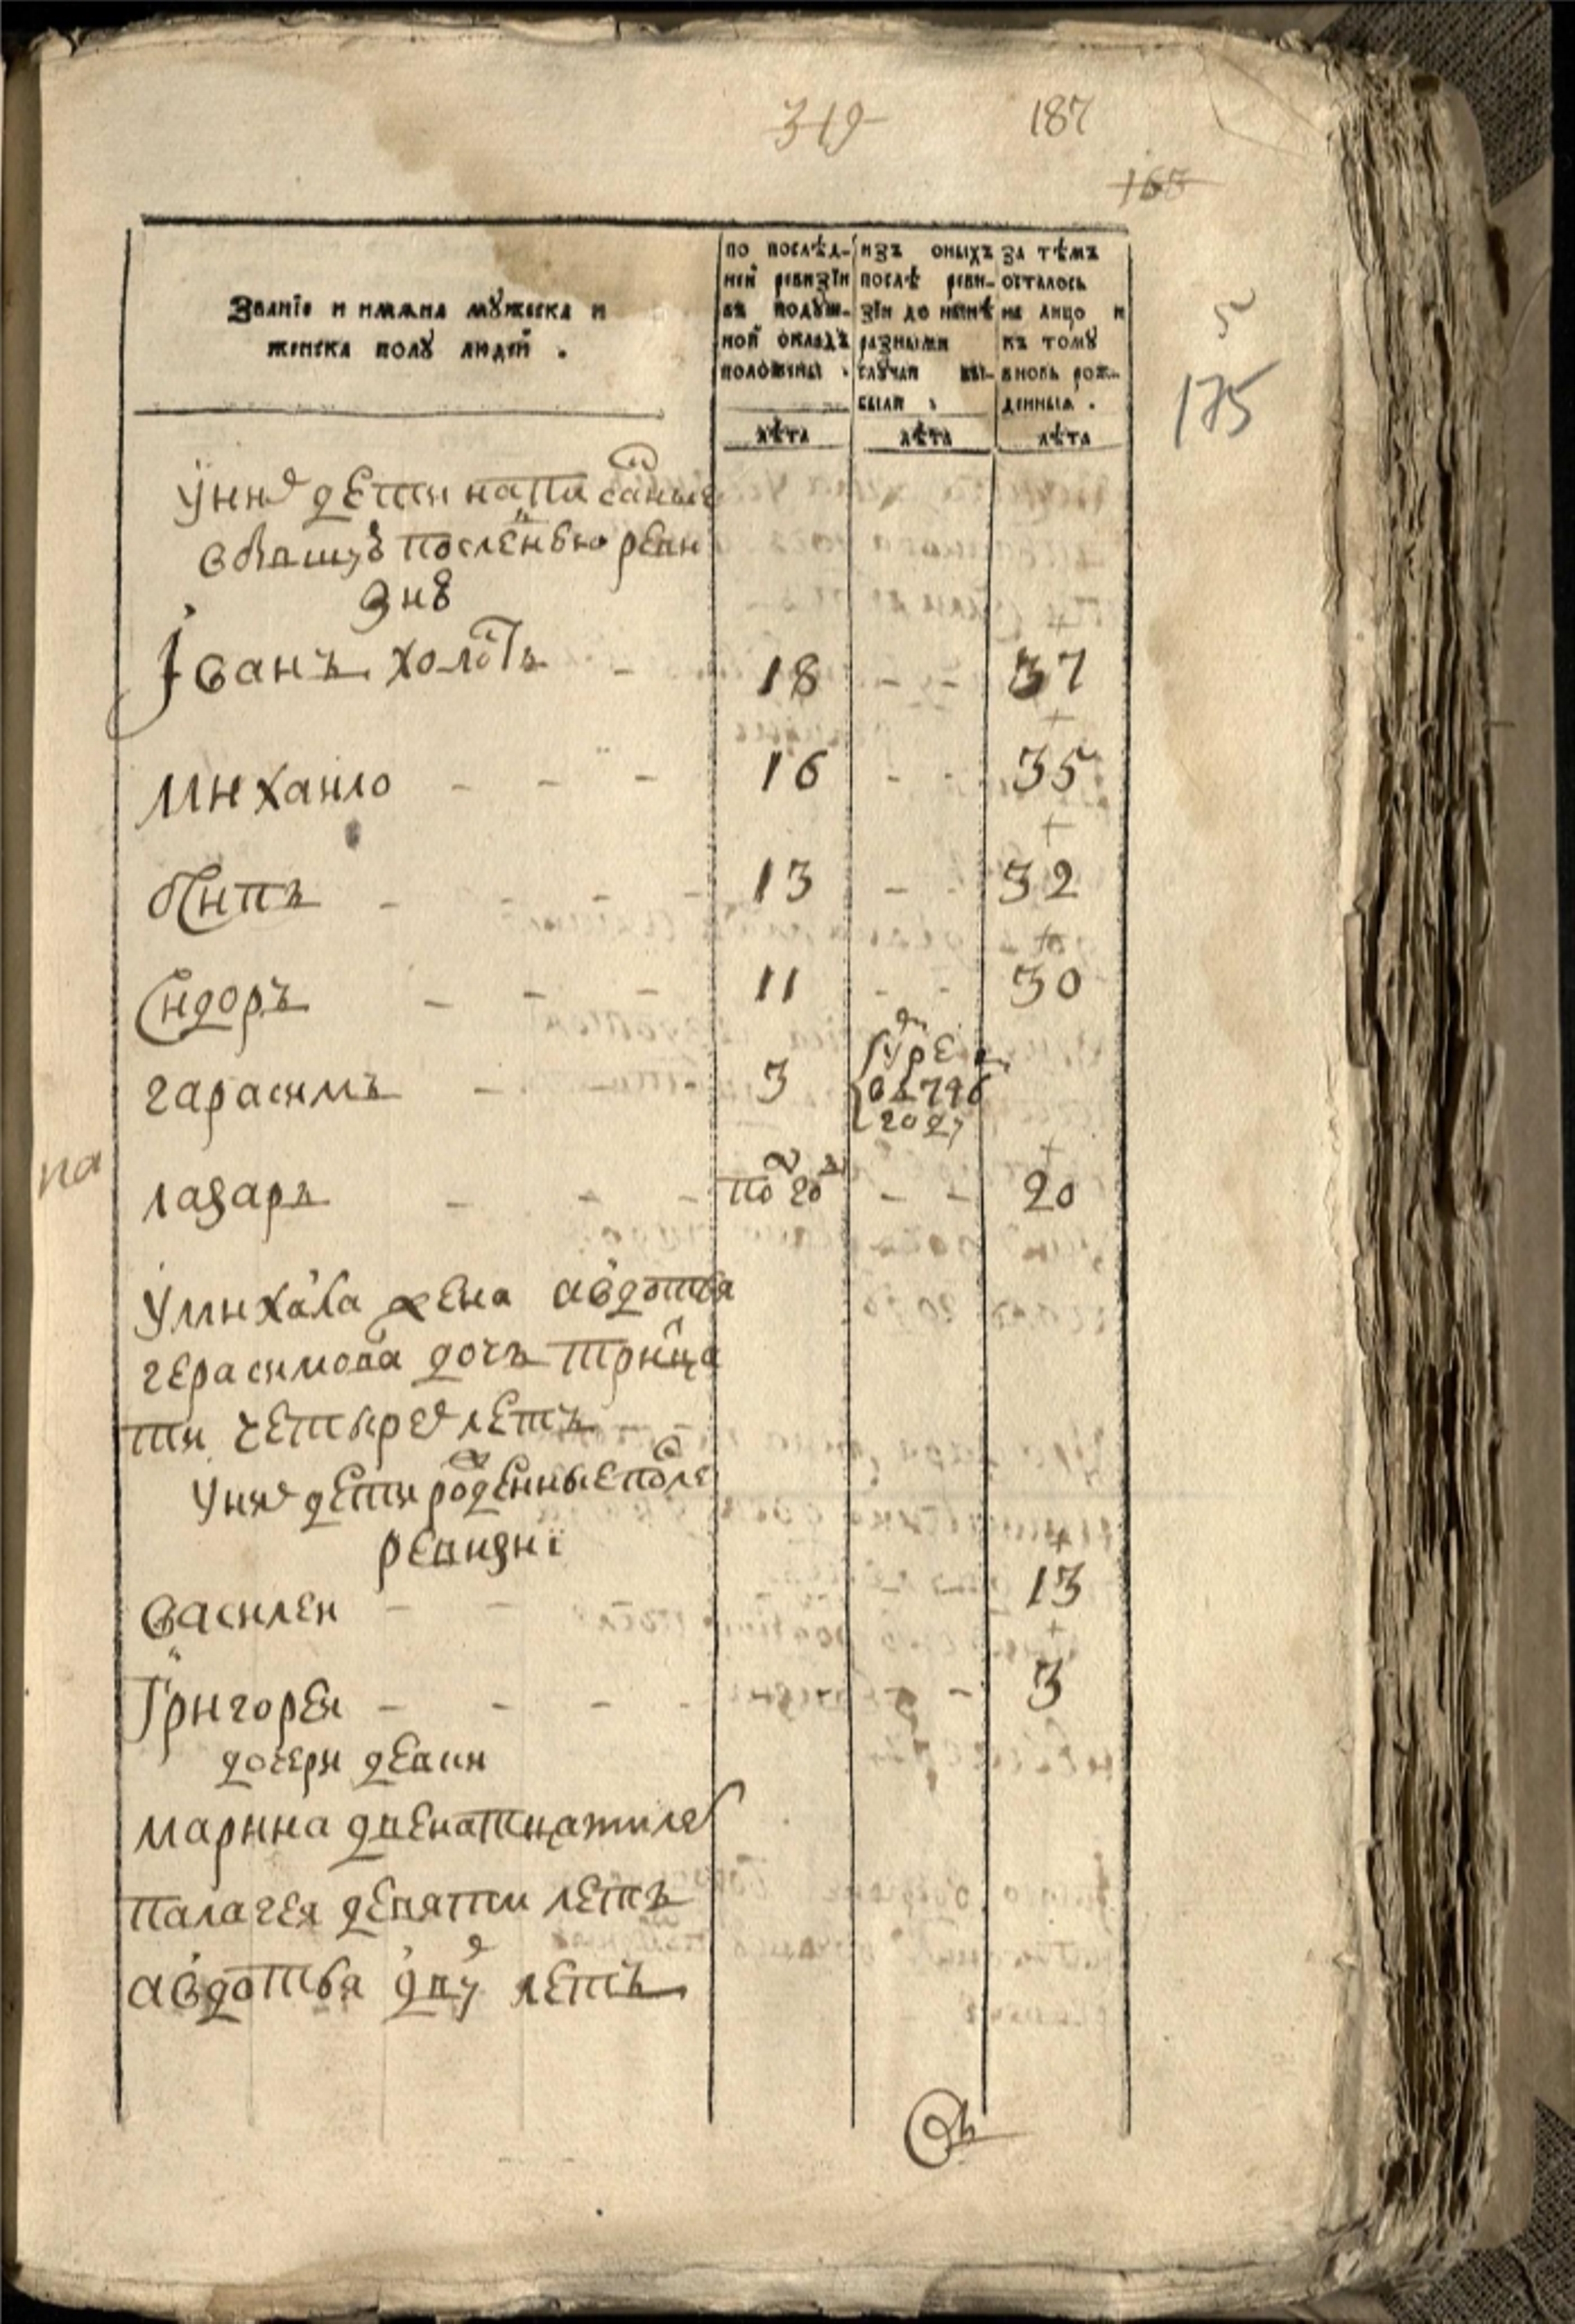 319
187
165
Званїе и имѧна мꙋжеска и
женска полꙋ людей .
по послѣд-
ней ревизїи
въ подꙋш-
ной окладъ
положены .
изъ оныхъ
послѣ реви-
зїи до нынѣ
разными
слꙋчаи вы-
были .
за тѣмъ
осталось
на лицо и
къ томꙋ
вновь рож-
денныѧ .
лѣта
лѣта
лѣта
175
У них дети написаные
в бывшую последнею реви
зию
Іванъ холостъ - 18 - - 37
михаило - - - 16 - - 35
осипъ - - - - 13 - - 32
Сидоръ - - - 11 - - 30
гарасимъ - 3
умре
въ 796
году
на
лазаръ - - - по год - - 20
У михаила жена авдотья
герасимова дочь тритца
ти четырех летъ
У них дети рожденные после
ревизиї
василеи - - 13
Григореи - - - - - 3
дочери девки
марина двенатцати лет
палагея девяти летъ
авдотья двух летъ